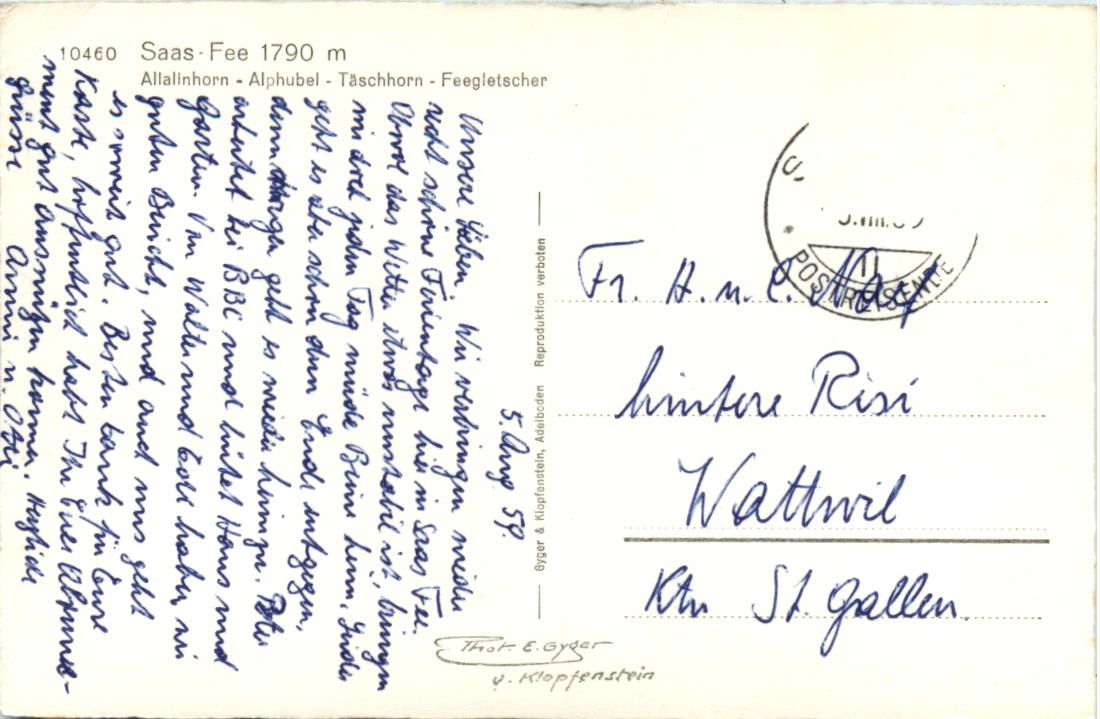 10460 Saas-Fee 1790 m
Allalinhorn - Alphubel - Täschhorn - Feegletscher
5. Aug. 59.
Unsere Lieben Wir verbringen wieder
recht schöne Ferientage hier in Saas Fee.
Obwol das Wetter etwas unstabil ist, bringen
wir doch jeden Tag müde Beine heim. Leider
geht es aber schon dem Ende entgegen,
denn morgen geht es wieder heimzu. Peter
arbeitet bei BBC und hütet Haus und
Garten. Von Walter und haben wir
guten Bericht, und auch uns geht
es soweit gut. Besten Dank für Eure
Karte, hoffentlich habt Ihr Euer
gut ausnützen können. Herzliche
Grüsse Anni u. Otti
Gyger & Klopfenstein, Adelboden Reproduktion verboten
POSTREISENDE
Fr. H. u. C. Näf
hintere Risi
Wattwil
Ktn St. Gallen.
Phot. E. Gyger
u. Klopfenstein